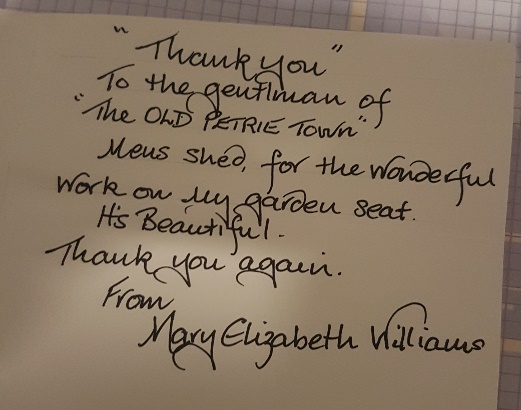 "Thank you"
To the gentlman of
"The OLD PETRIE TOWN"
Mens shed, for the wonderful
work on my garden seat.
It's Beautiful.
Thank you again.
From
Mary Elizabeth Williams